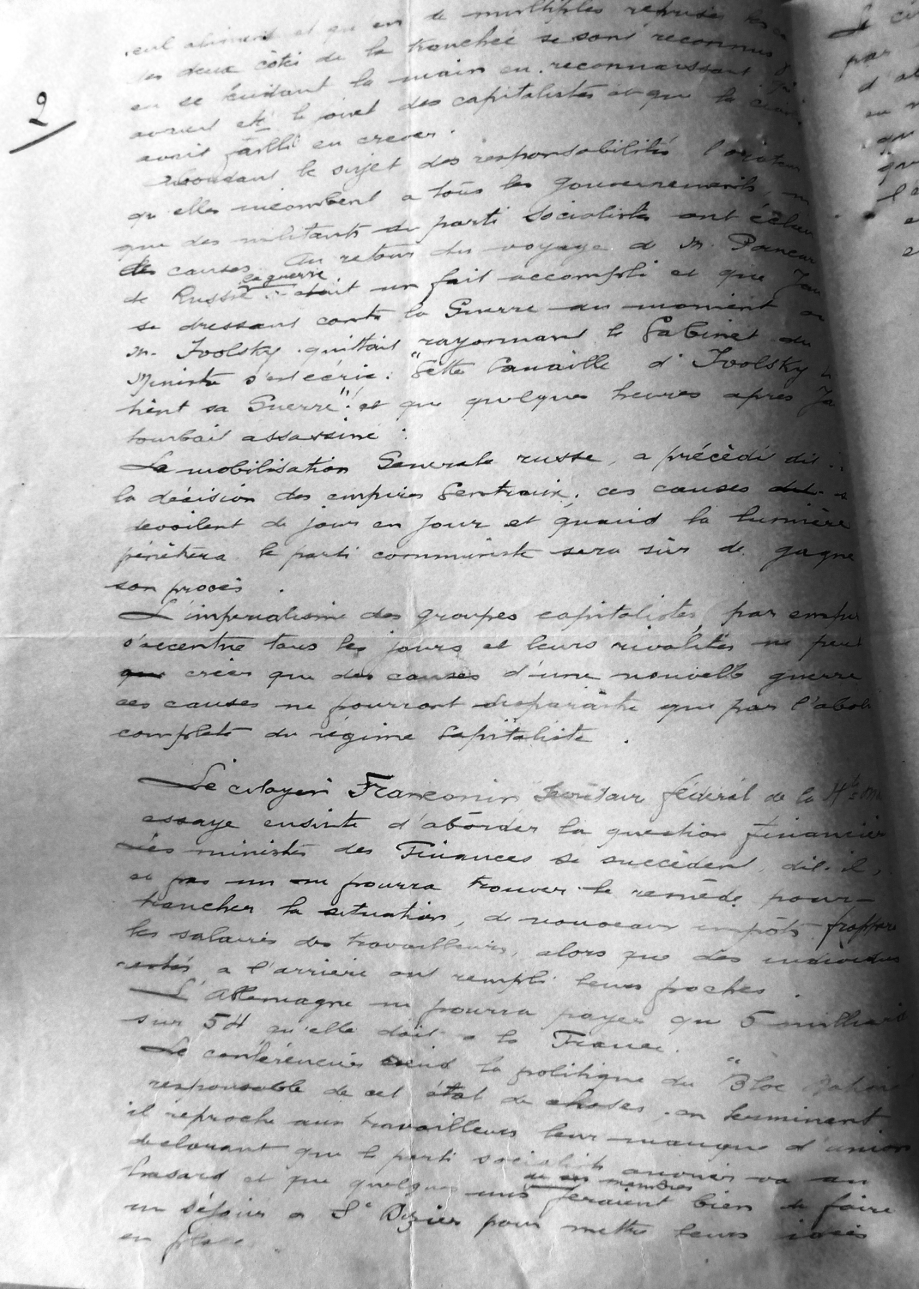 2
seul aliment et qu'en de multiples
des deux côtés de la tranchée se sont reconnus
en se tendant la main en reconnaissant
avaient été le jouet des capitalistes et que la
avait failli en crever.
Abordant le sujet des responsabilités l'orateur
qu'elles incombent a tous les gouvernements,
que des militants du parti socialiste ont
les causes. Au retour du voyage de M. Poincar
de Russie la guerre était un fait accompli et que
se dressant contre la Guerre au moment
M. Isvolsky quittait rayonnant le Cabinet du
Ministre s'est ecrié: "Cette Canaille d'Isvolsky
tient sa Guerre"! et que quelques heures apres Ja
tombait assassiné.
La mobilisation Generale russe, a précédé dit
la décision des empires Centraux, ces causes
devoilent de jour en jour et quand la lumière
pénétrera le parti communiste sera sûr de gagne
son procès.
L'imperialisme des groupes capitalistes, par
s'accentue tous les jours et leurs rivalités ne peu
créer que des causes d'une nouvelle guerre
ces causes ne pourront disparaitre que par l'abol
complète du régime Capitaliste.
Le citoyen Franconin Secrétaire fédéral de la Hte
essaye ensuite d'aborder la question financière
Les ministres des Finances se succèdent, dit-il,
et pas un ne pourra trouver le remède pour
trancher la situation, de nouveaux impôts frappe
les salaires des travailleurs, alors que des individus
restés a l'arrière ont rempli leurs poches.
L'Allemagne ne pourra payer que 5 milliards
sur 54 qu'elle doit a la France.
Le conférencier rend la politique du "Bloc
responsable de cet état de choses. en terminant
il reproche aux travailleurs leur manque d'union
declarant que le parti socialiste ouvrier va au
hasard et que quelques uns de ses membres feraient bien de faire
un séjour a St Dizier pour mettre leurs idées
en place.